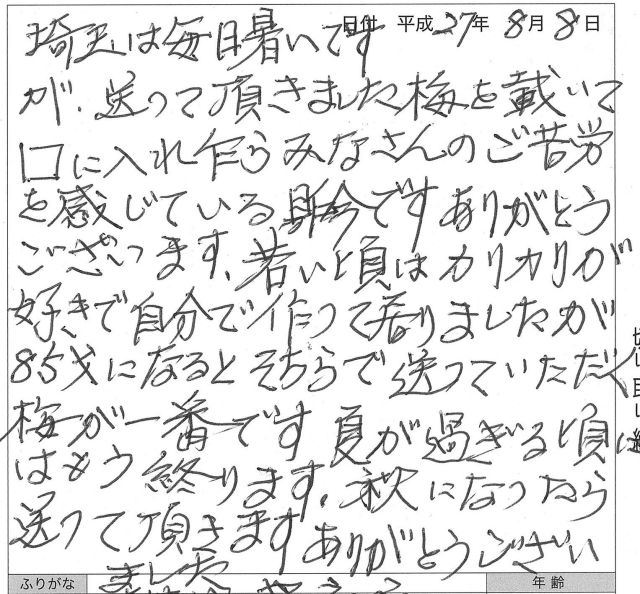 日付 平成 27年 8月 8日
埼玉は毎日暑いです
が、送って頂きました梅を戴いて
口に入れ乍らみなさんのご苦労
を感じている昨今です ありがとう
ございます、若い頃はカリカリが
好きで自分で作って居りましたが
85才になるとそちらで送っていただく
梅が一番です 夏が過ぎる頃は
はもう終ります、秋になったら
送って頂きます ありがとうござい
ました
ふりがな 年齢